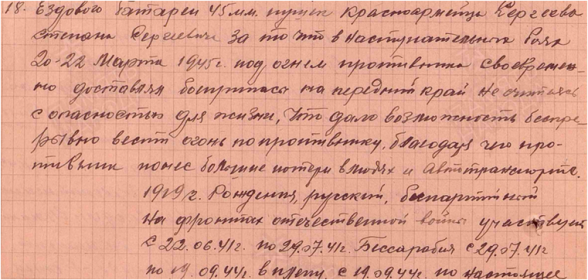 18. Ездового батареи 45 мм. пушек Красноармейца Сергеева
Степана Сергеевича за то что в наступательных боях
20-22 Марта 1945 г. под огнем противника своевремен
но доставлял боеприпасы на передний край не считаясь
с опасностью для жизни, что дало возможность беспре
рывно вести огонь по противнику, благодаря чего про-
тивник понес большие потери в людях и Автотранспорте.
1919 г. Рождения, русский, беспартийный
На фронтах отечественной войны участвует
с 22.06.41г. по 29.07.41г. Бессарабия с 29.07.41г
по 19.09.44г. в плену, с 19.09.44г. по настоящее